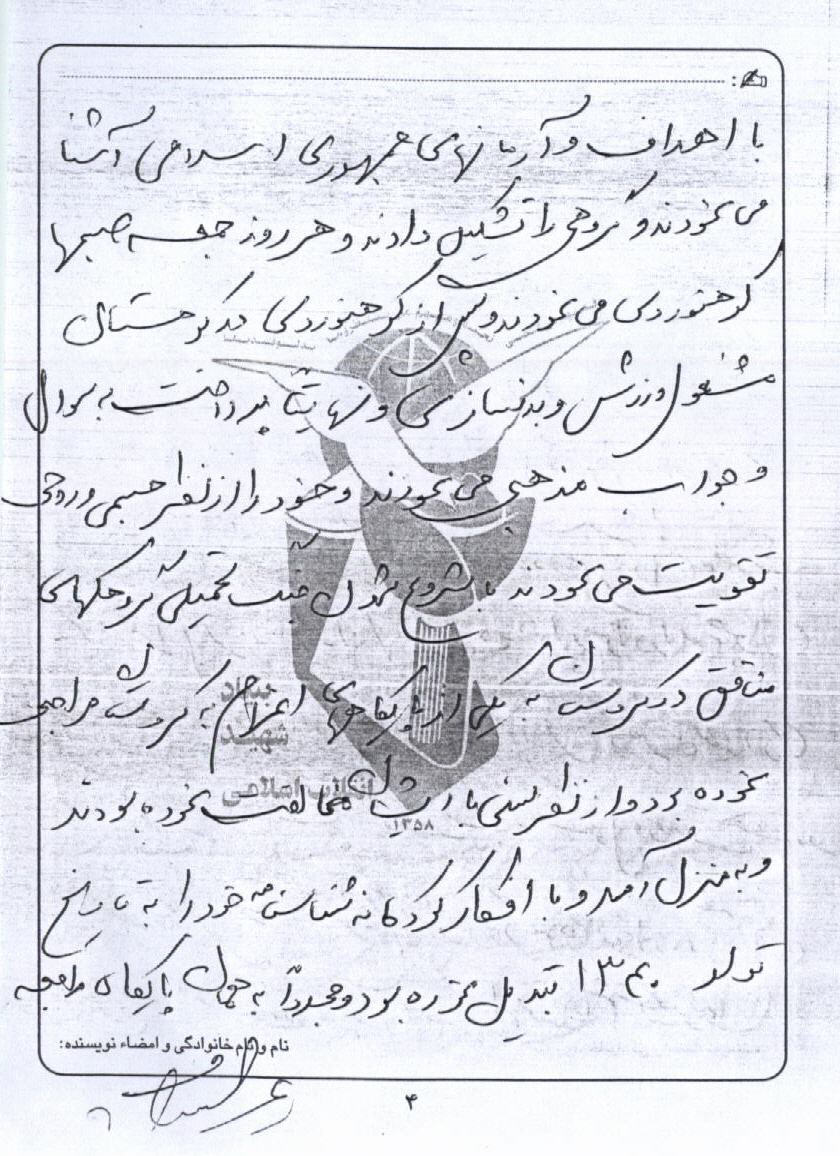 با اهداف و آرمانهای جمهوری اسلامی آشنا
می نمودند و گروهی را تشکیل دادند و هر روز جمعه صبحها
کوهنوردی می نمودند و پس از کوهنوردی در کوهستان
مشغول ورزش و بدنسازی و نهایتاً پرداخت به سوال
و جواب مذهبی می نمودند و خود را از نظر جسمی و روحی
تقویت می نمودند با شروع شدن جنگ تحمیلی گروهکهای
منافق در کردستان به یکی از پایگاههای اعزام به کردستان مراجعه
نموده بود و از نظر سنی با ایشان مخالفت نموده بودند
و به منزل آمد و با افکار کودکانه شناسنامه خود را به تاریخ
تولد ۱۳۴۰ تبدیل نموده بود و مجدداً به همان پایگاه مراجعه
بنیاد
شهید
انقلاب اسلامی
۱۳۵۸
نام و نام خانوادگی و امضاء نویسنده:
۴